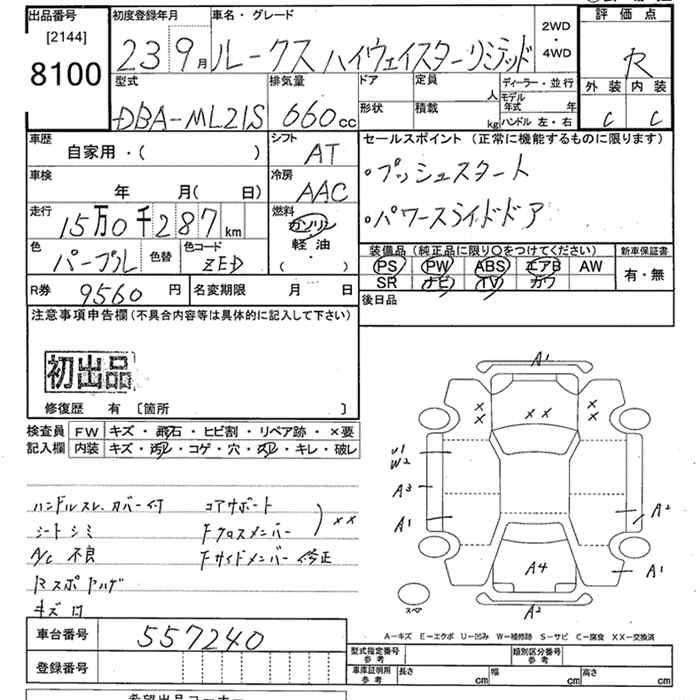 出品番号 初度登録年月 車名・グレード 評価点
[2144] 8100
23 9月 ルークス ハイウェイスターリミテッド 2WD・4WD R
型式 排気量 ドア 定員 人 ディーラー・並行 外装 内装
DBA-ML21S 660cc 形状 積載 kg モデル年式 年 ハンドル 左・右 C C
車歴 自家用・( ) シフト AT
セールスポイント (正常に機能するものに限ります)
・プッシュスタート
・パワースライドドア
車検 年 月( 日) 冷房 AAC
走行 15万0千287km 燃料 ガソリン 軽油 ・( )
色 パープル 色替 色コード ZED
装備品(純正品に限り○をつけてください) 新車保証書
PS PW ABS エアB AW 有・無
SR ナビ TV カワ
R券 9560円 名変期限 月 日
後日品
注意事項申告欄(不具合内容等は具体的に記入して下さい)
初出品
修復歴 有 [箇所 ]
検査員 FW キズ・飛石・ヒビ割・リペア跡・×要
記入欄 内装 キズ・汚レ・コゲ・穴・スレ・キレ・破レ
ハンドルスレ、カバー付 コアサポート
シートシミ Fクロスメンバー ) ××
A/C 不良 Fサイドメンバー 修正
Rスポ ハゲ
キズ 凹
A1
× × × × × ×
U1
W2
A3
A1
A2
A1
A4
A2
スペア
A－キズ E－エクボ U－凹み W－補修跡 S－サビ C－腐食 XX－交換済
車台番号 557240
登録番号
型式指定番号 参考 類別区分番号 参考
車庫証明用 参考 長さ cm 幅 cm 高さ cm
希望出品コーナー